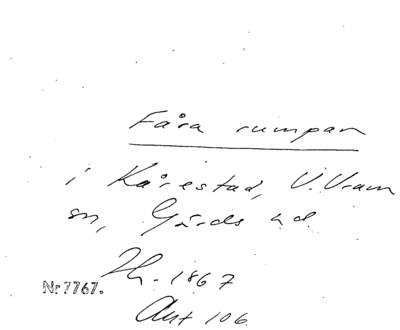 Fåra rumpan
i Kårestad, V. Vram
sn, Gärds hd.
Th. 1867
Nr 7767.
Akt 106